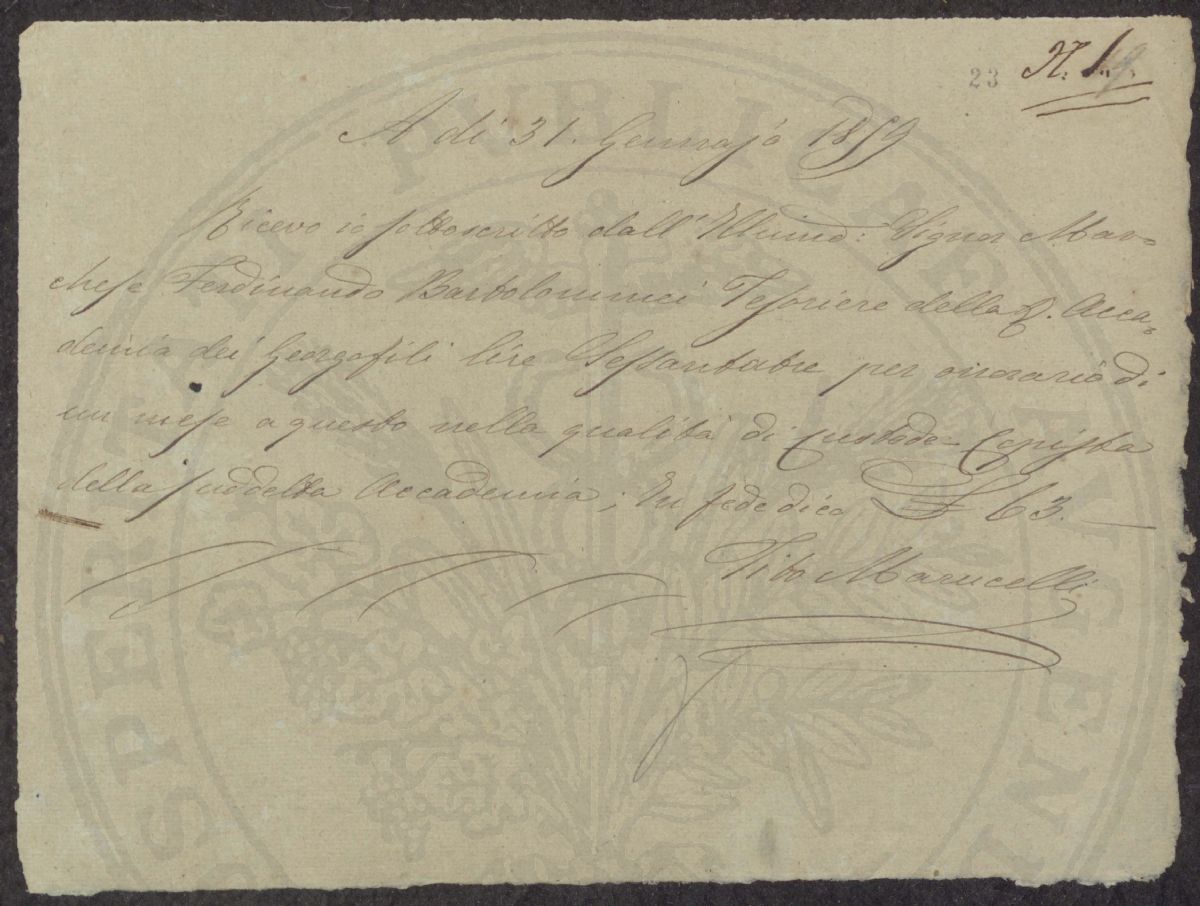 23 N. 1.
A di 31. Gennajo 1859
Ricevo io sottoscritto dall' Illũmo: Signor Mar=
chese Ferdinando Bartolommei Tesoriere della R. Acca=
demia dei Georgofili lire Sessantatre per onorario di
un mese a questo nella qualità di Custode Copista
della suddetta Accademia; In fede dico £ 63. —
Tito Marucelli
PROSPERITATI PUBLICAE AUGENDAE